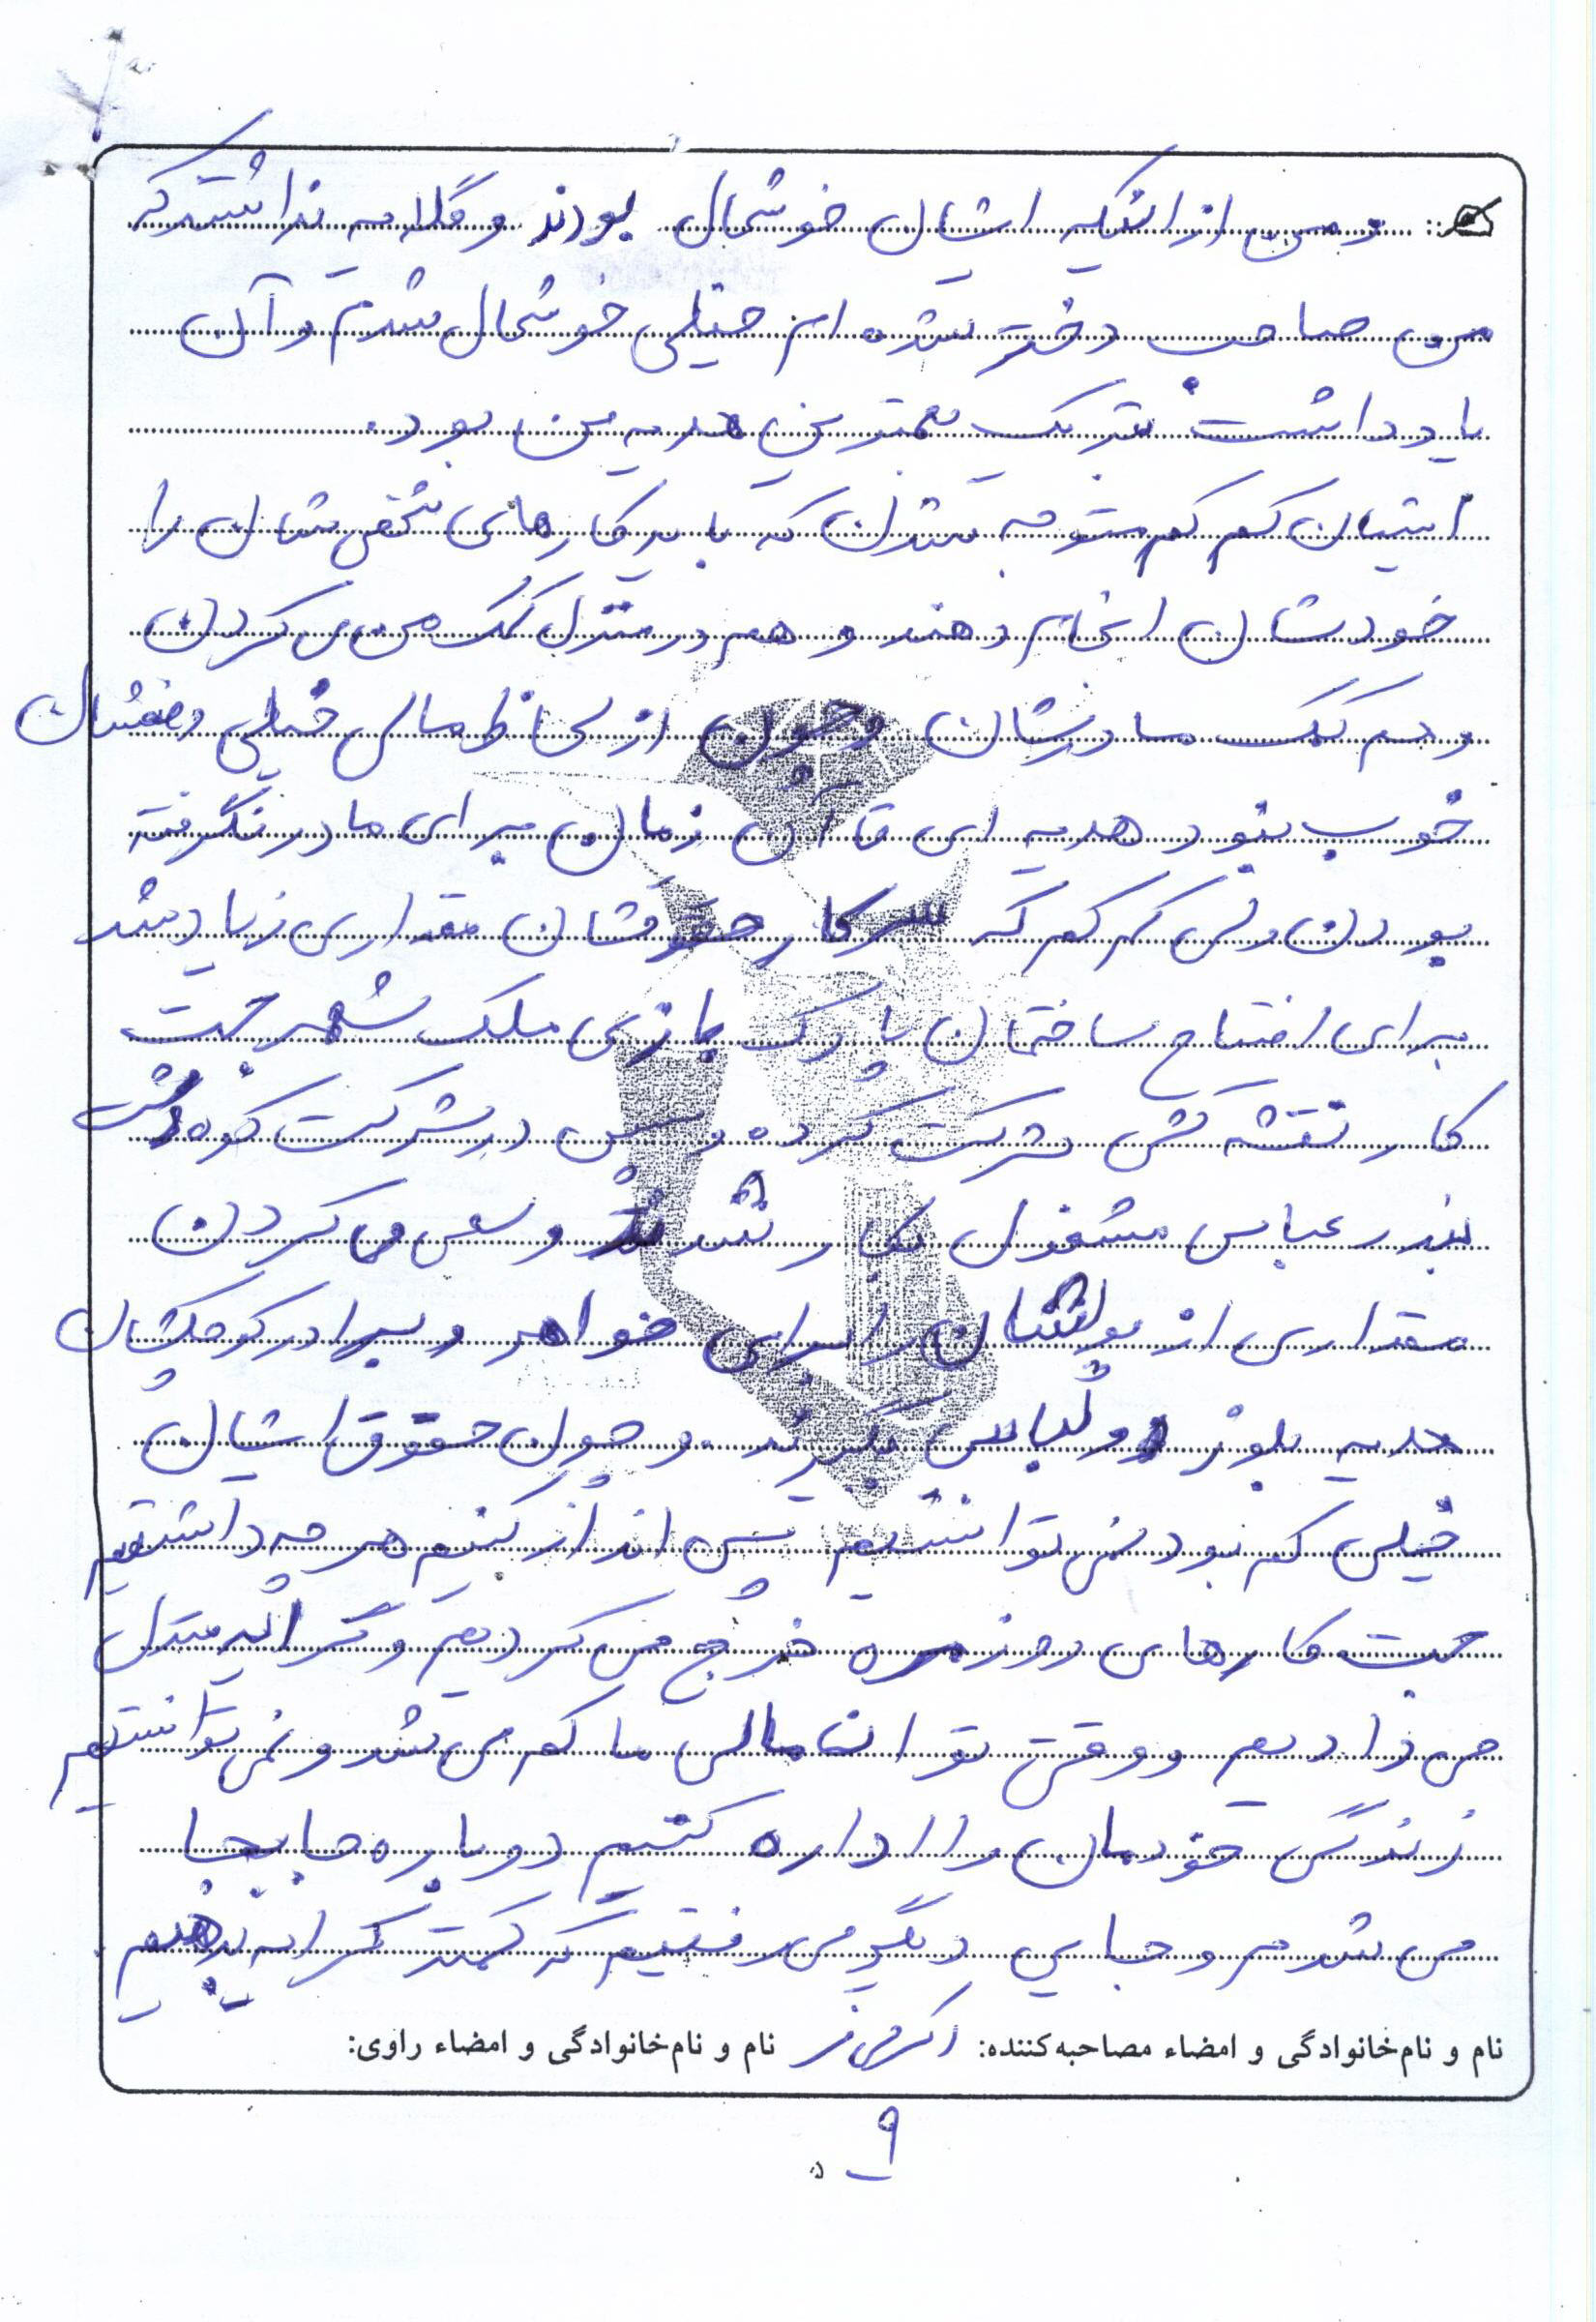 و من از اینکه ایشان خوشحال بودند و گلایه نداشتند که
من صاحب دختر شده ام خیلی خوشحال شدم و آن
یادداشت تبریک بهترین هدیه من بود.
ایشان کم کم متوجه شدن که باید کارهای شخصی شان را
خودشان انجام دهند و هم در منزل کمک من می کردن
و هم کمک مادرشان و چون از لحاظ مالی خیلی وضعشان
خوب نبود هدیه ای تا آن زمان برای مادر نگرفته
بودن ولی کم کم که سر کار حقوقشان مقداری زیاد شد
برای افتتاح ساختمان پارک بازی ملک شهر جهت
کار نقشه کشی شرکت کرده و سپس در شرکت کوه دشت
بندر عباس مشغول بکار شدند و سعی می کردن
مقداری از پولشان را برای خواهر و برادر کوچکشان
هدیه بلوز و لباس بگیرند و چون حقوق ایشان
خیلی کم بود نمی توانستیم پس انداز کنیم هر چه داشتیم
جهت کارهای روزمره خرج می کردیم و کرایه منزل
می دادیم و وقتی توان مالی ما کم می شد و نمی توانستیم
زندگی خودمان را اداره کنیم دوباره جابجا
می شدیم و جایی دیگر می رفتیم که کمتر کرایه بدهیم
نام و نام‌خانوادگی و امضاء مصاحبه‌کننده: نام و نام‌خانوادگی و امضاء راوی:
۹